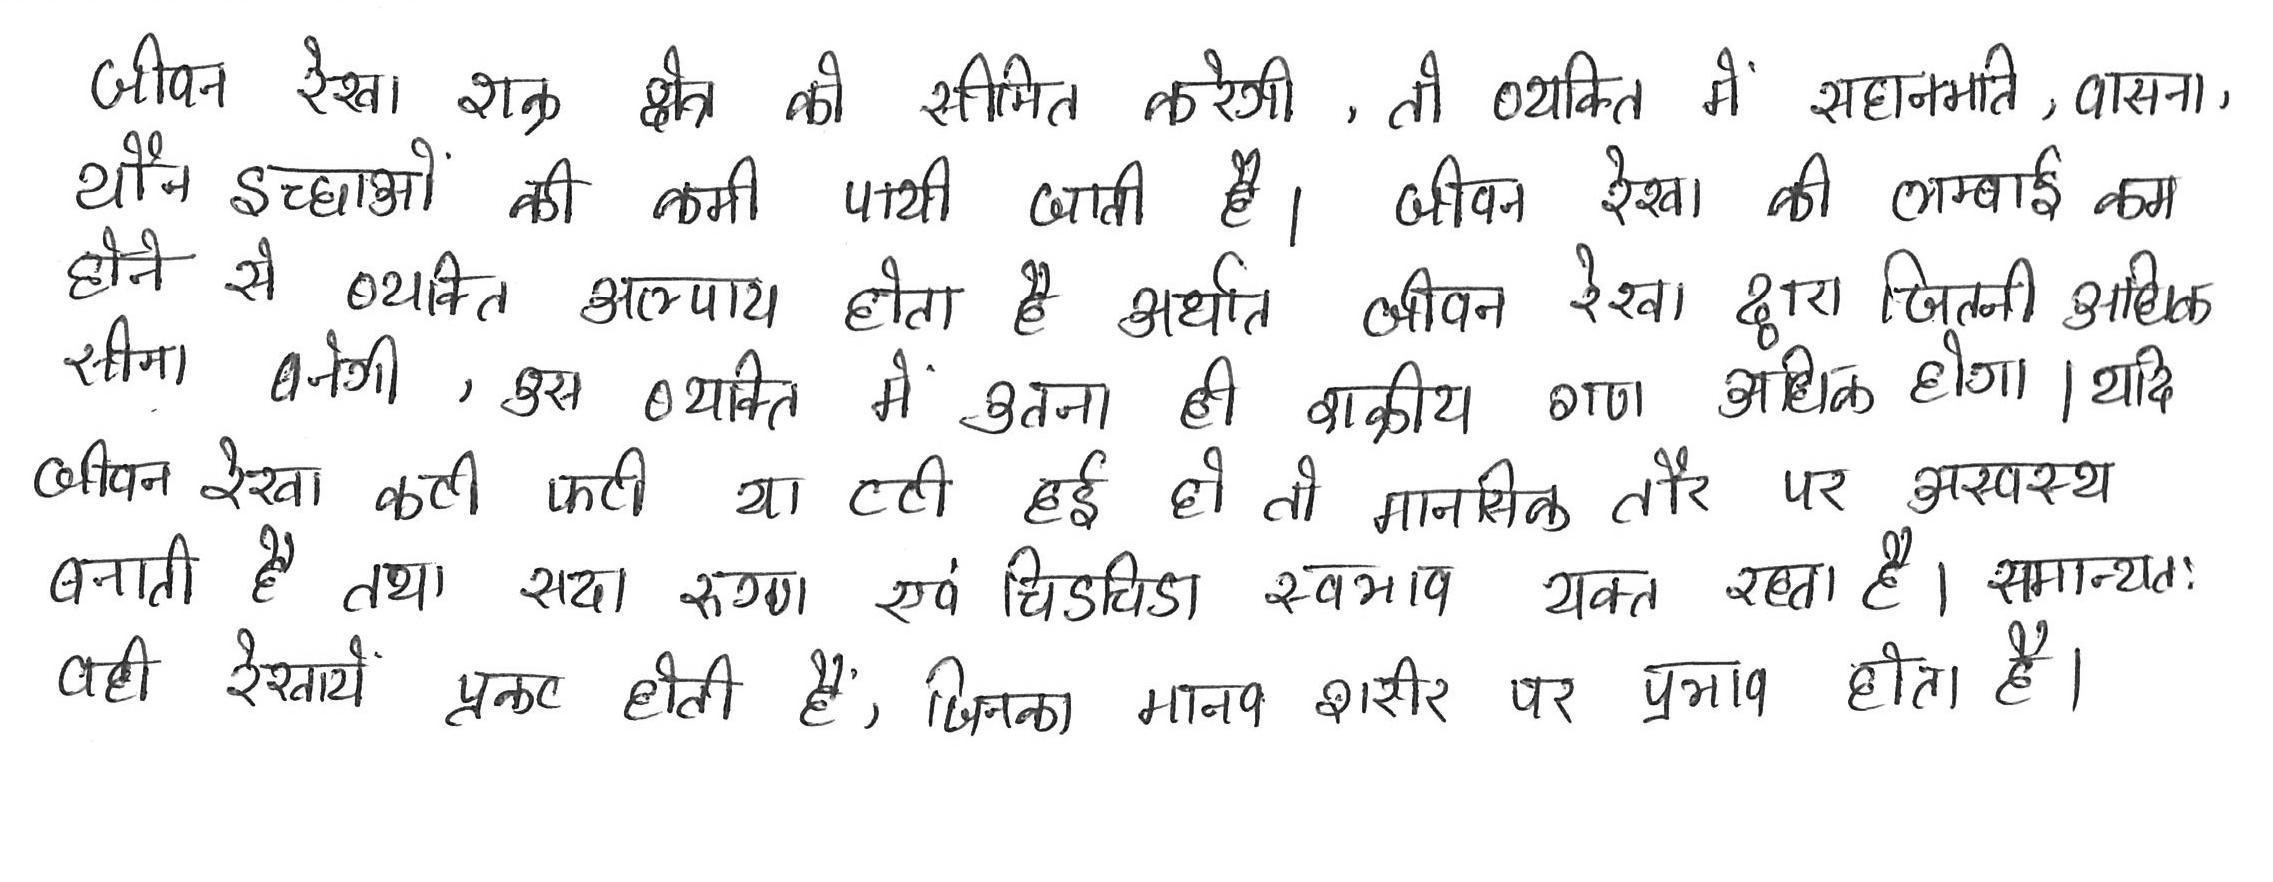 जीवन रेखा शक्र क्षेत्र को सीमित करेगी , तो व्यक्ति में सहानभति , वासना ,
यौन इच्छाओं की कमी पायी जाती है । जीवन रेखा की लम्बाई कम
होने से व्यक्ति अल्पाय होता है अर्थात जीवन रेखा द्वारा जितनी अधिक
सीमा बनेगी , उस व्यक्ति में उतना ही शक्रीय गण अधिक होगा । यदि
जीवन रेखा कटी फटी या टटी हई हो तो मानसिक तौर पर अस्वस्थ
बनाती है तथा सदा रुग्ण एवं चिडचिडा स्वभाव यक्त रहता है । समान्यतः
वही रेखायें प्रकट होती हैं , जिनका मानव शरीर पर प्रभाव होता है ।